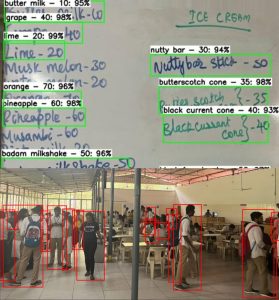 butter milk – 10: 95%
grape – 40: 98%
lime – 20: 99%
Lime - 20
Musk melon - 30
melon - 20
orange – 70: 96%
pineapple – 60: 98%
Pineapple - 60
Musambi - 60
badam milkshake – 50: 96%
milkshake - 50
ICE CREAM
nutty bar – 30: 94%
Nuttybar stick -
butterscotch cone – 35: 98%
scotch } - 35
black current cone – 40: 93%
Black Currant } - 40
cone